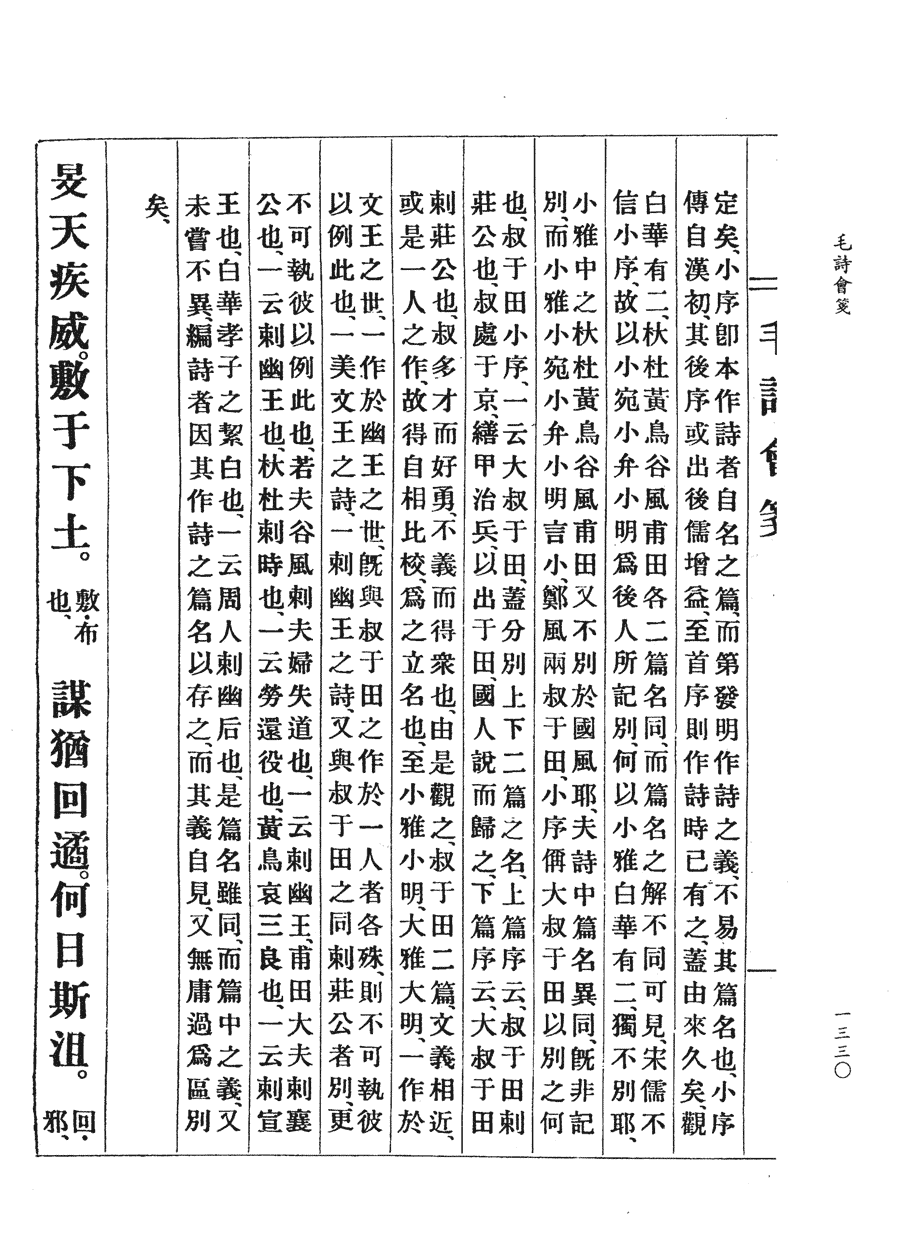 毛詩會箋
一三三〇
毛詩會箋
定矣、小序卽本作詩者自名之篇、而第發明作詩之義、不易其篇名也、小序
傳自漢初、其後序或出後儒增益、至首序則作詩時已有之、蓋由來久矣、觀
白華有二、杕杜黃鳥谷風甫田各二篇名同、而篇名之解不同可見、宋儒不
信小序、故以小宛小弁小明爲後人所記別、何以小雅白華有二、獨不別耶、
小雅中之杕杜黃鳥谷風甫田又不別於國風耶、夫詩中篇名異同、旣非記
別、而小雅小宛小弁小明言小、鄭風兩叔于田、小序偁大叔于田以別之何
也、叔于田小序、一云大叔于田、蓋分別上下二篇之名、上篇序云、叔于田刺
莊公也、叔處于京、繕甲治兵、以出于田、國人說而歸之、下篇序云、大叔于田
刺莊公也、叔多才而好勇、不義而得衆也、由是觀之、叔于田二篇、文義相近、
或是一人之作、故得自相比校、爲之立名也、至小雅小明、大雅大明、一作於
文王之世、一作於幽王之世、旣與叔于田之作於一人者各殊、則不可執彼
以例此也、一美文王之詩、一刺幽王之詩、又與叔于田之同刺莊公者別、更
不可執彼以例此也、若夫谷風刺夫婦失道也、一云刺幽王、甫田大夫刺襄
公也、一云刺幽王也、杕杜刺時也、一云勞還役也、黃鳥哀三良也、一云刺宣
王也、白華孝子之絜白也、一云周人刺幽后也、是篇名雖同、而篇中之義、又
未嘗不異、編詩者因其作詩之篇名以存之、而其義自見、又無庸過爲區別
矣、
旻天疾威。敷于下土。敷・布也、謀猶回遹。何日斯沮。回・邪、